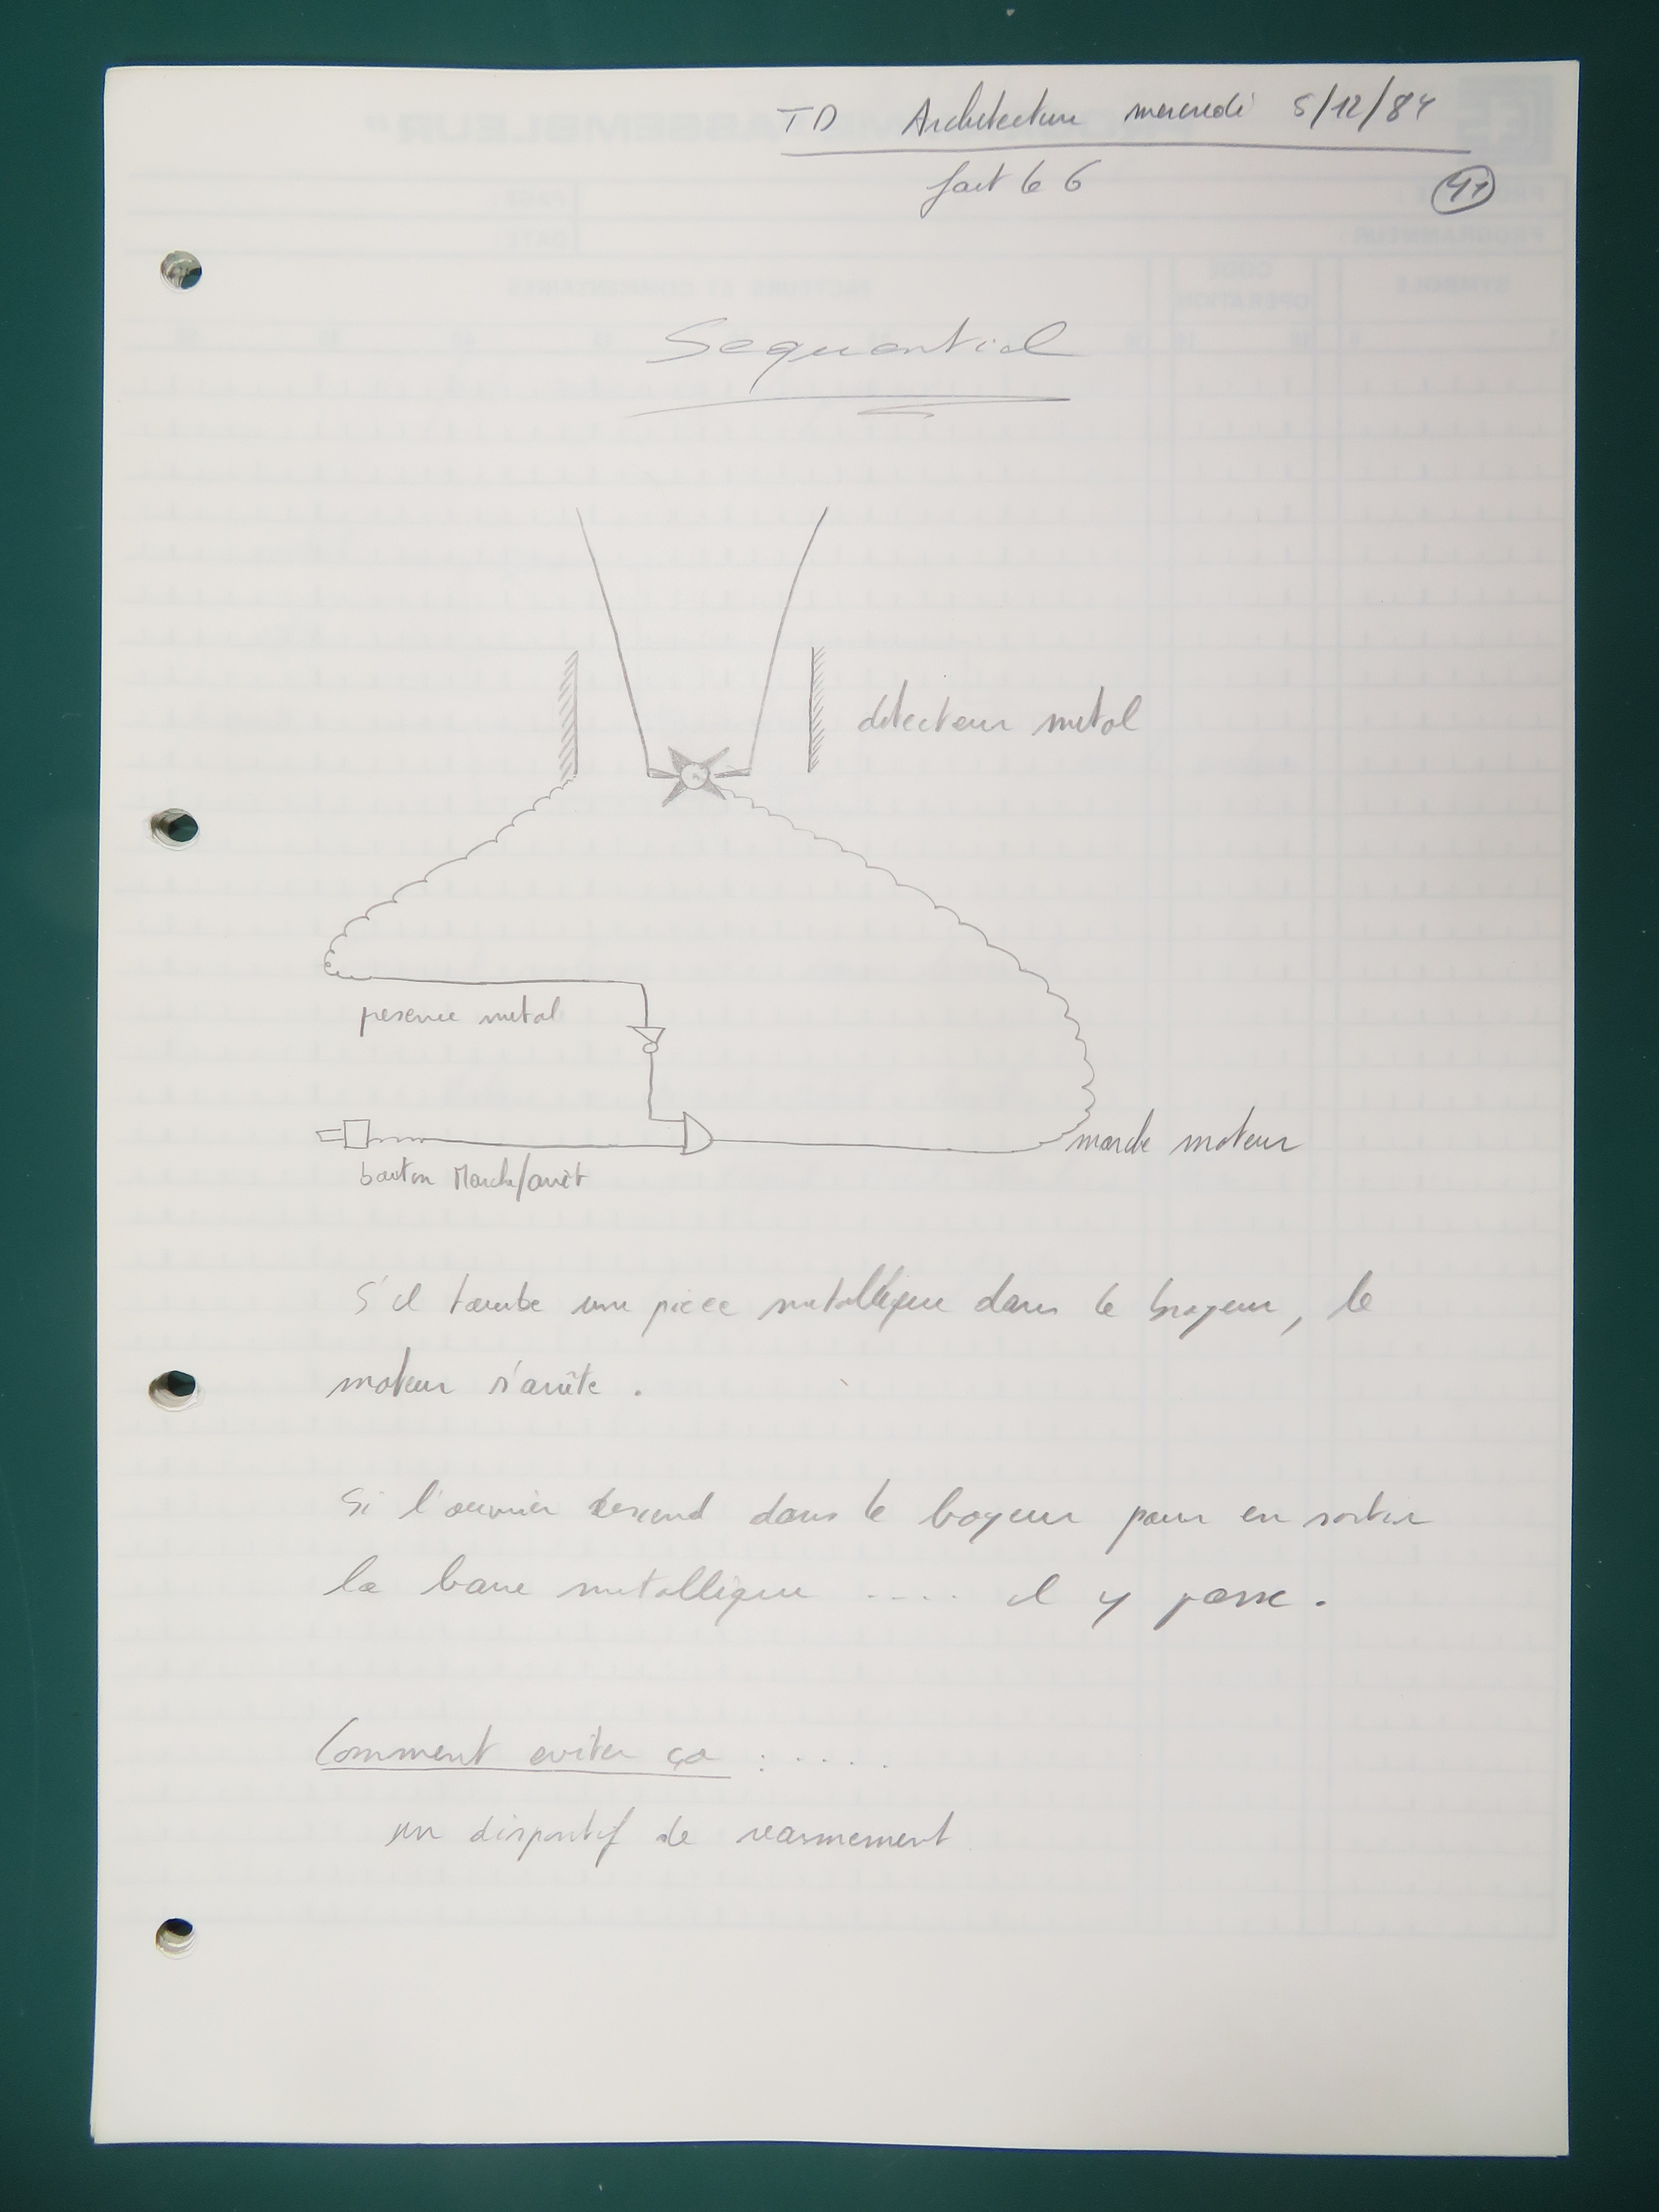 TD Architecture mercredi 5/12/84
fait le 6
41
Sequentiel
detecteur metal
presence metal
marche moteur
bouton Marche/arrêt
S'il tombe une piece metallique dans le broyeur, le
moteur s'arrête.
Si l'ouvrier descend dans le broyeur pour en sortir
la barre metallique .... il y passe.
Comment eviter ça : ....
un dispositif de rearmement